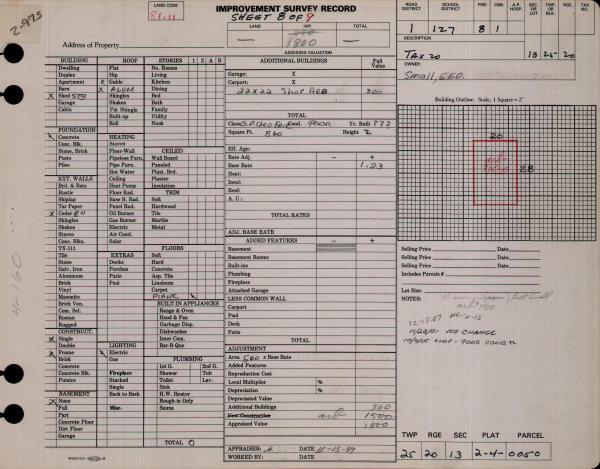 2-975
LAND CODE
81.11
IMPROVEMENT SURVEY RECORD
SHEET 8 OF 9
LAND
IMP.
TOTAL
1800
ASSESSED VALUATION
Address of Property
ROAD DISTRICT
SCHOOL DISTRICT
FIRE
CEM.
A.P. HOSP.
SEC. OR LOT
TWP. OR BLK.
RGE.
TAX NO.
1
127
8
1
DESCRIPTION
TAX 20
13 25 20
OWNER:
Small, GEO.
BUILDING
ROOF
STORIES
1 2 A B
Dwelling
Flat
No. Rooms
Duplex
Hip
Living
Apartment
x Gable
Kitchen
Barn
x ALUM
Dining
x Shed STG
Shingles
Bed
Garage
Shakes
Bath
Cabin
Pat Shingle
Family
Built-up
Utility
Roll
Nook
FOUNDATION
Concrete
HEATING
Conc. Blk.
Stoves
Stone, Brick
Floor-Wall
CEILED
Posts
Pipeless Furn.
Wall Board
Piles
Pipe Furn.
Paneled
Hot Water
Plast. Brd.
EXT. WALLS
Ceiling
Plaster
Brd. & Bats
Heat Pump
Insulation
Rustic
Floor Rad.
TRIM
Shiplap
Base B. Rad.
Soft
Tar Paper
Panel Rad.
Hardwood
x Cedar
Oil Burner
Tile
Shingles
Gas Burner
Marble
Shakes
Electric
Metal
Stucco
Air Cond.
Conc. Blks.
Solar
TX-111
FLOORS
Tile
EXTRAS
Soft
Stone
Decks
Hard
Galv. Iron
Porches
Concrete
Aluminum
Patio
Asp. Tile
Brick
Pool
Linoleum
Vinyl
Carpet
Masonite
PLANK
Brick Ven.
BUILT-IN APPLIANCES
Com. Sel.
Range & Oven
Roman
Hood & Fan
Rugged
Garbage Disp.
CONSTRUCT.
Dishwasher
x Single
Inter Com.
Double
LIGHTING
Bar-B-Que
x Frame
Electric
Brick
Gas
PLUMBING
Concrete
Fireplace
1st G.
2nd G.
Pumice
Stacked
Shower
Tub
Single
Toilet
Lav.
BASEMENT
Sink
x None
H.W. Heater
Full
Misc.
Rough-in Only
Part
Sauna
Concrete Floor
Dirt Floor
Garage
TOTAL 0
ADDITIONAL BUILDINGS
Full Value
Garage: X
Carport: X
22X22 Shop
300
TOTAL
Cond. POOR
Yr. Built ???
Square Ft. 560
Height 2
Eff. Age:
Rate Adj. — +
Base Rate 1.23
Heat:
Insul:
Roof:
A.C.:
TOTAL RATES
ADJ. BASE RATE
ADDED FEATURES — +
Basement
Basement Rooms
Built-ins
Plumbing
Fireplace
Attached Garage
LESS COMMON WALL
Carport
Pool
Deck
Patio
TOTAL
ADJUSTMENT
Area 560 x Base Rate
Added Features
Reproduction Cost
Local Multiplier %
Depreciation %
Depreciated Value
Additional Buildings 300
New Construction 1500
Appraised Value 1800
APPRAISER:
DATE 11-13-87
WORKED BY:
DATE
Building Outline. Scale, 1 Square = 2'
20
28
Selling Price Date
Selling Price Date
Selling Price Date
Includes Parcels #
Lot Size:
NOTES:
11/20/01 NO CHANGE
TWP RGE SEC PARCEL
25 20 13 2-4-0050
4-160